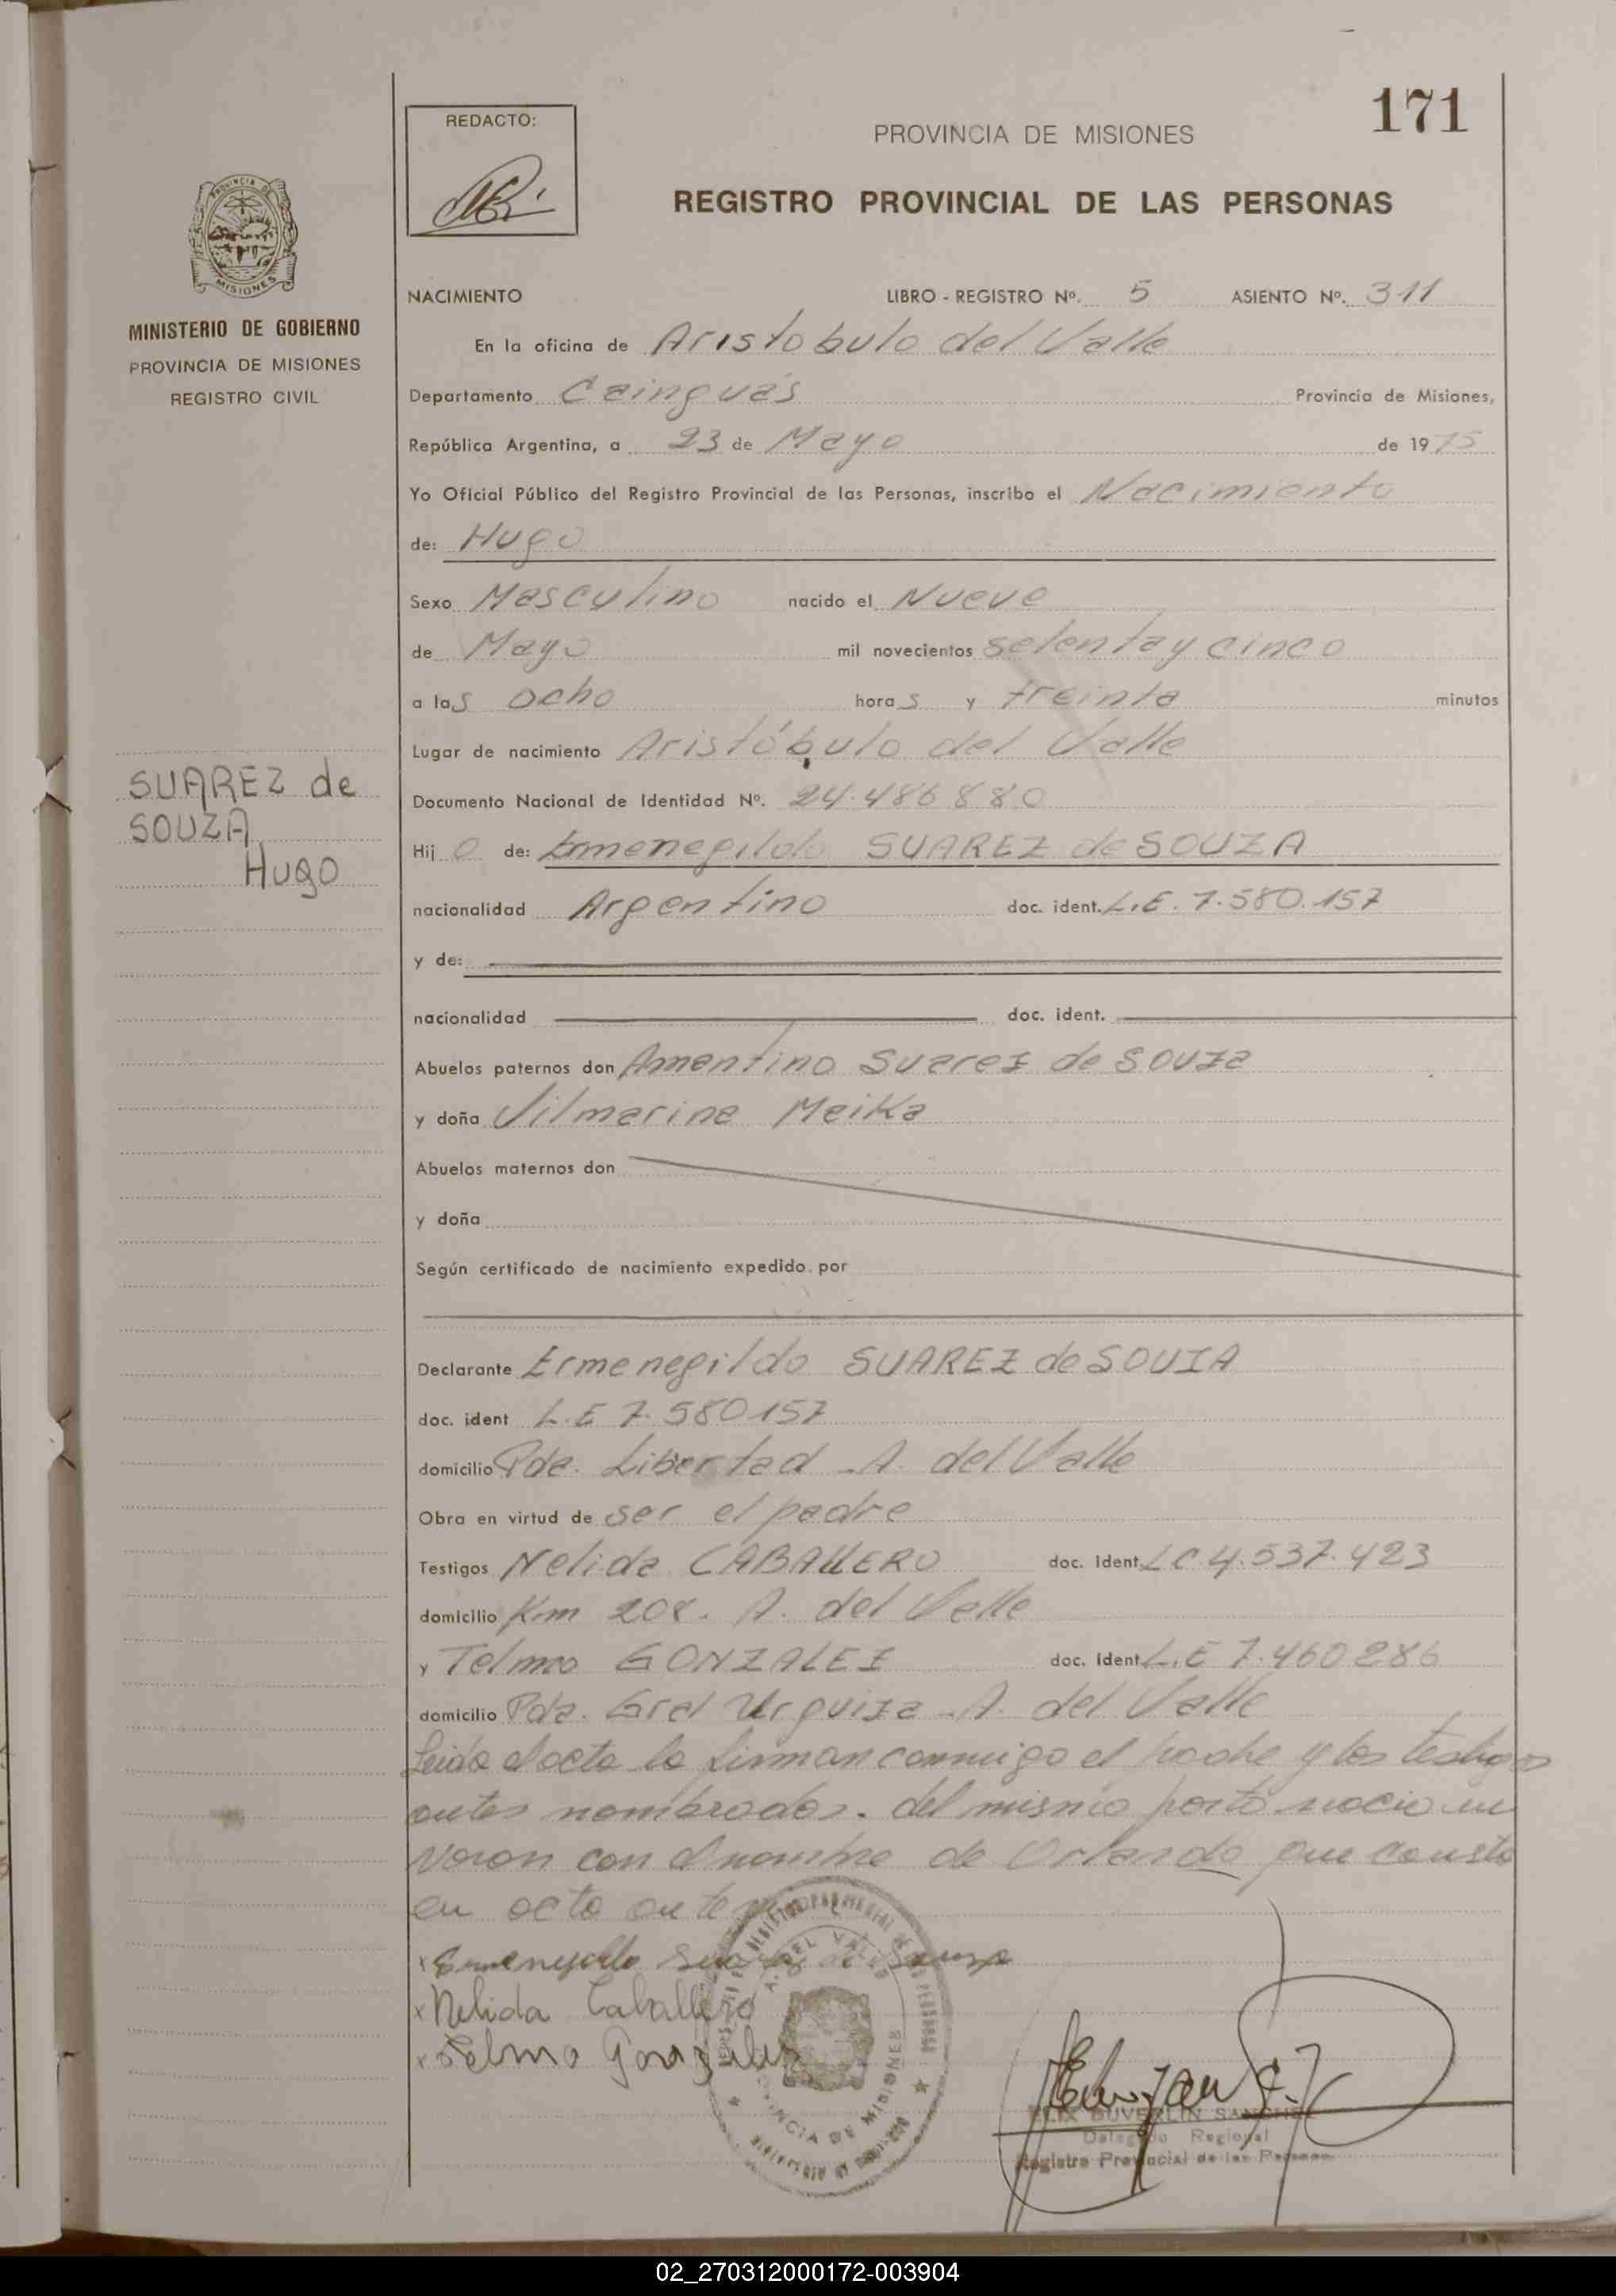 171
REDACTO:
PROVINCIA DE MISIONES
REGISTRO PROVINCIAL DE LAS PERSONAS
MINISTERIO DE GOBIERNO
PROVINCIA DE MISIONES
REGISTRO CIVIL
SUAREZ de
SOUZA
HUGO
NACIMIENTO LIBRO - REGISTRO Nº. 5 ASIENTO Nº. 311
En la oficina de Aristobulo del Valle
Departamento Cainguás Provincia de Misiones,
República Argentina, a 23 de Mayo de 1975
Yo Oficial Público del Registro Provincial de las Personas, inscribo el Nacimiento
de: Hugo
Sexo Masculino nacido el Nueve
de Mayo mil novecientos setenta y cinco
a las ocho horas y treinta minutos
Lugar de nacimiento Aristóbulo del Valle
Documento Nacional de Identidad Nº. 24.486880
Hijo de: Ermenegildo SUAREZ de SOUZA
nacionalidad Argentino doc. ident. L.E. 7.580.157
y de:
nacionalidad doc. ident.
Abuelos paternos don Amentino Suarez de Souza
y doña Vilmarina Meika
Abuelos maternos don
y doña
Según certificado de nacimiento expedido por
Declarante Ermenegildo SUAREZ de SOUZA
doc. ident L.E 7.580157
domicilio Pda. Libertad A. del Valle
Obra en virtud de ser el padre
Testigos Nelida CABALLERO doc. ident. LC 4.537.423
domicilio Km 208. A. del Valle
y Telmo GONZALEZ doc. ident. L.E 7.460286
domicilio Pda. Gral Urquiza A. del Valle
Leida el acta la firman conmigo el padre y los testigos
antes nombrados. del mismo parto nacio un
varon con el nombre de Orlando que consta
en acta
x Ermenegildo Suarez de Souza
x Nelida Caballero
x Telmo Gonzalez
A. DEL VALLE
PROVINCIA DE MISIONES
DUVERLIN SANCHEZ
Delegado Regional
Registro Provincial de las Personas
02_270312000172-003904